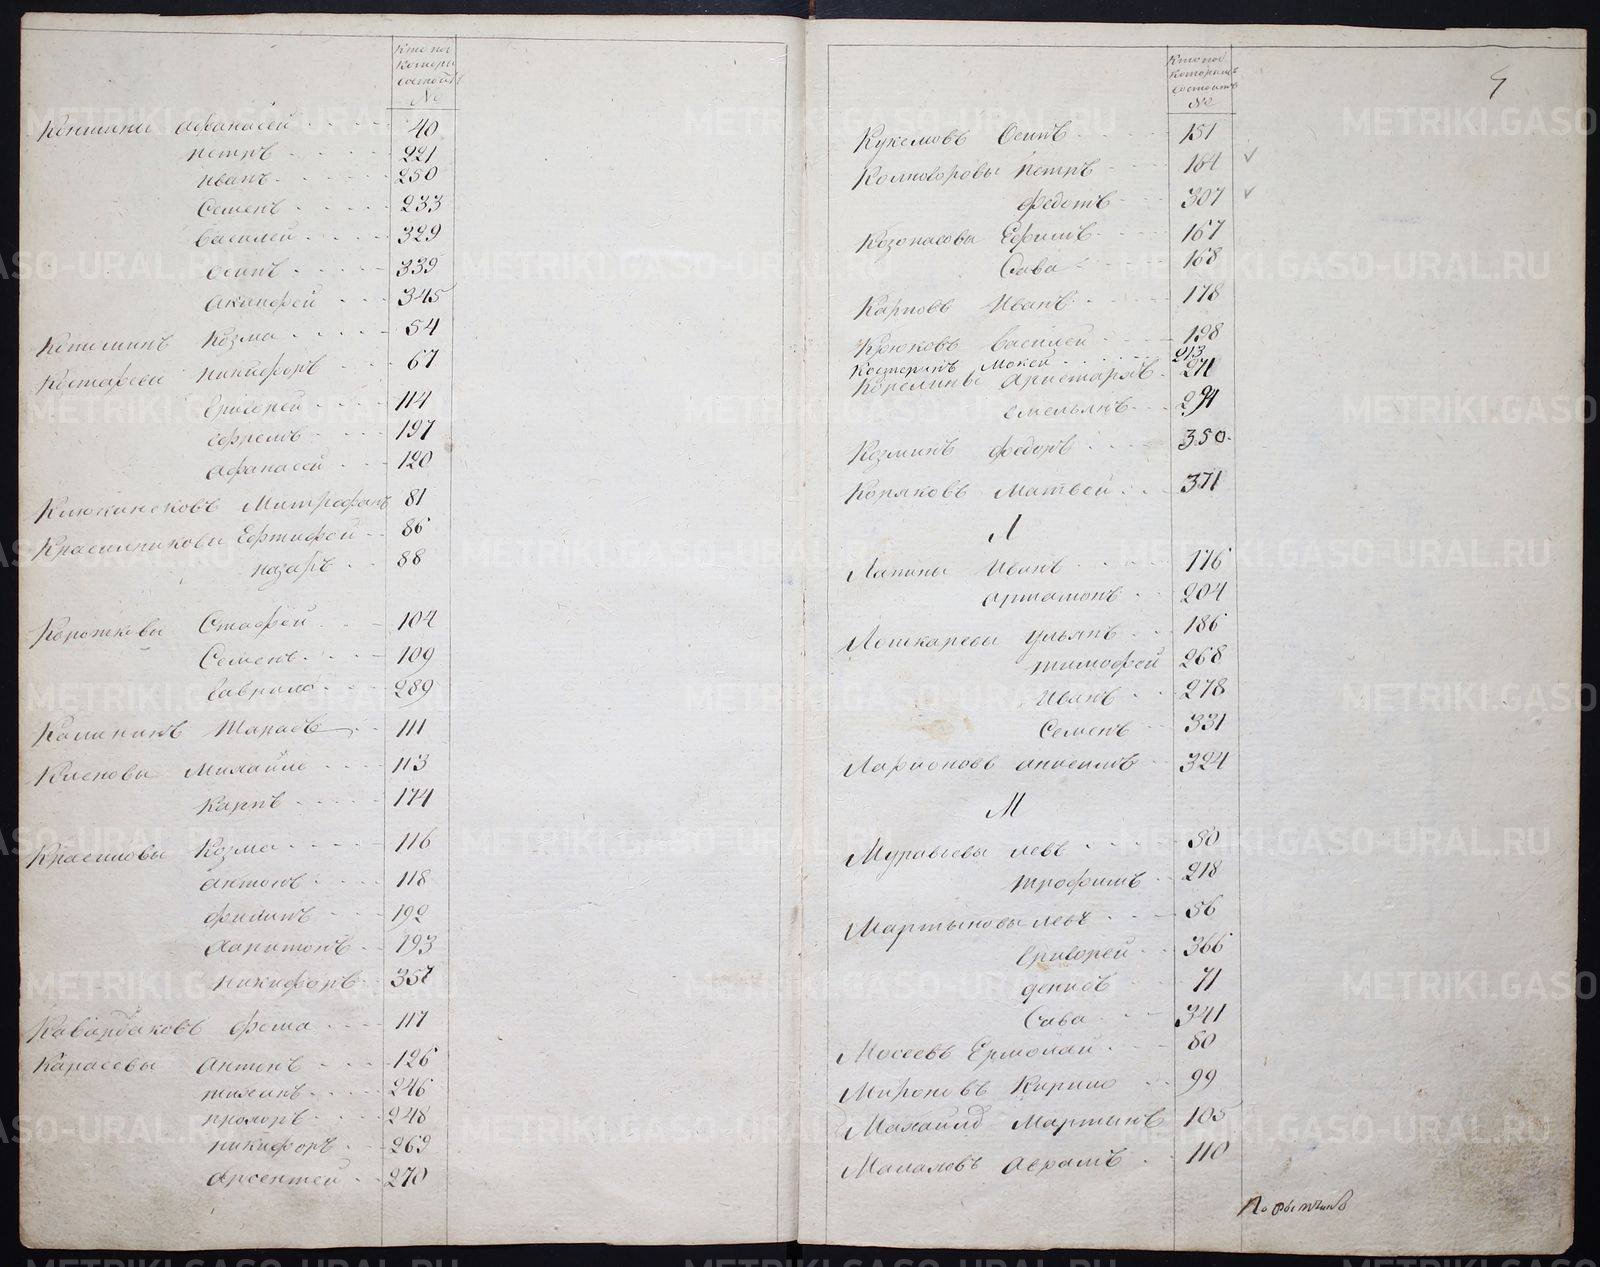 Кто под
которымъ
состоитъ
№
Коншины Афанасей 40
Петръ 221
Иванъ 250
Семенъ 233
Василей 329
Осипъ 339
Акинфей 345
Козма 54
Костарева Никифоръ 67
Григорей 114
Ефремъ 197
Афанасей 120
Митрофанъ 81
Красильниковы Ефтифей 86
Назаръ 88
Коротковы Стафей 104
Семенъ 109
Гаврило 289
Калининъ Тарасъ 111
Кленовы Михайло 113
Карпъ 174
Красиловы Козма 116
Антонъ 118
Филипъ 192
Харитонъ 193
Никифоръ 357
Кавардаковъ Фома 117
Карасевы Антонъ 126
Тихонъ 246
Прохоръ 248
Никифоръ 269
Арсентей 270
Кто под
которымъ
состоитъ
№
Осипъ 151
Коловоровы Петръ 164
Федотъ 307
Козопасовы Ефимъ 167
Сава 168
Карповъ Иванъ 178
Крюковъ Василей 198
Костеринъ Мокей 213
Корелины Аристархъ 271
Емельянъ 294
Козминъ Федоръ 350
Копяковъ Матвей 371
Л
Лапины Иванъ 176
Артамонъ 204
Лошкаревы Ульянъ 186
Тимофей 268
Иванъ 278
Семенъ 331
Ларионовъ Анисимъ 324
М
Муравьевы Левъ 50
Трофимъ 218
Мартыновы Левъ 56
Григорей 366
Денисъ 71
Сава 341
Мосеевъ Ермолай 80
Мироновъ Кирило 99
Мартынъ 105
Малаховъ Абрамъ 110
METRIKI.GASO-URAL.RU